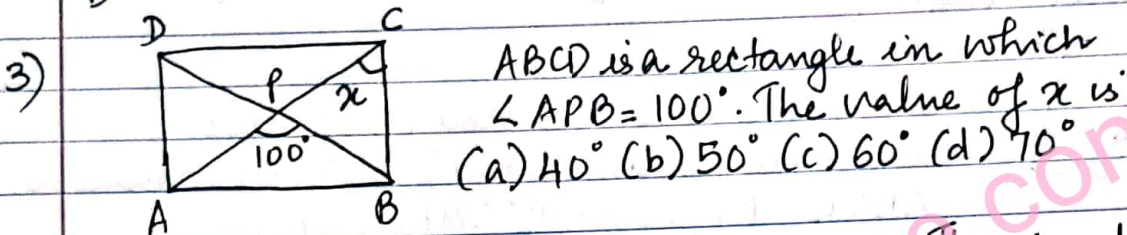 3)
D C
P
x
100°
A B
ABCD is a rectangle in which
∠APB = 100°. The value of x is
(a) 40° (b) 50° (c) 60° (d) 70°